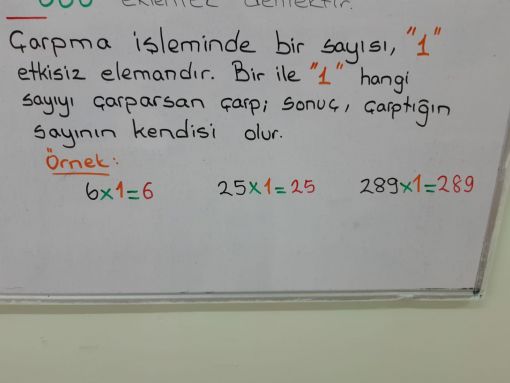 000 eklemek demektir.
Çarpma işleminde bir sayısı, "1"
etkisiz elemandır. Bir ile "1" hangi
sayıyı çarparsan çarp; sonuç, çarptığın
sayının kendisi olur.
Örnek:
6x1=6 25x1=25 289x1=289